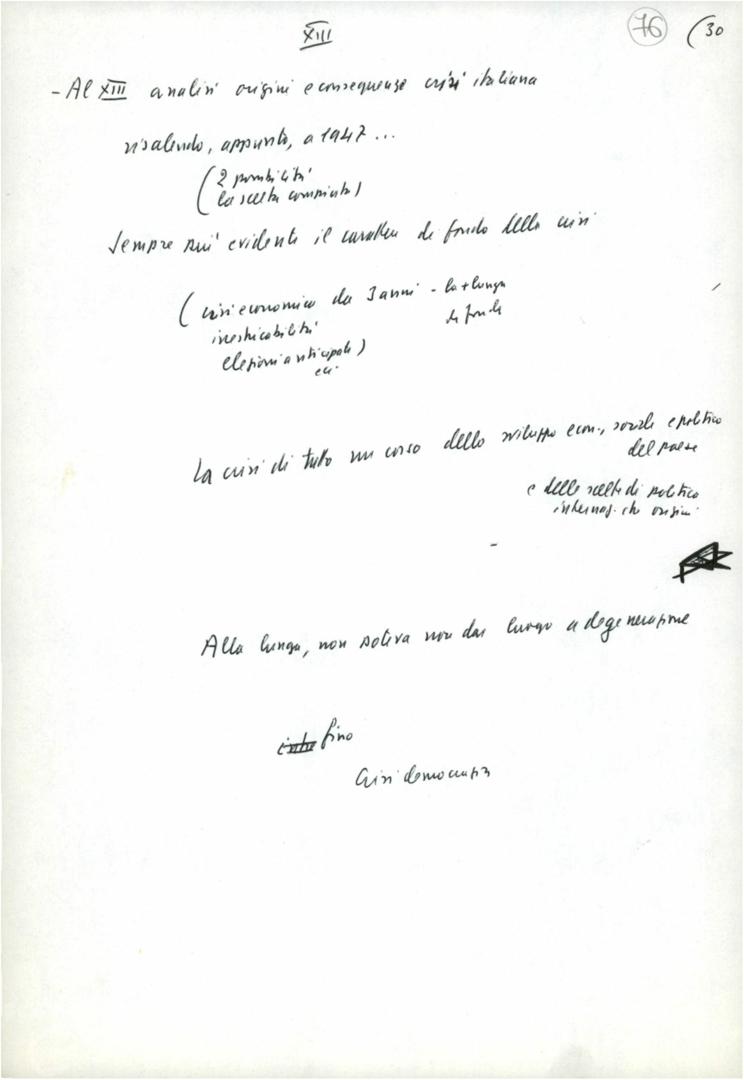 XIII
76
(30
- Al XIII analisi origini e conseguenze crisi italiana
risalendo, appunto, a 1947 ...
(2 possibilità
la scelta compiuta)
Sempre più evidente il carattere di fondo della crisi
(crisi economica da 3 anni - la + lunga
di fondo
inestricabilità
elezioni anticipate)
ecc.
La crisi di tutto un corso dello sviluppo econ., sociale e politico
del paese
e delle scelte di politica
internaz. che origini
Alla lunga, non poteva non dar luogo a degenerazione
fino
Crisi democrazia